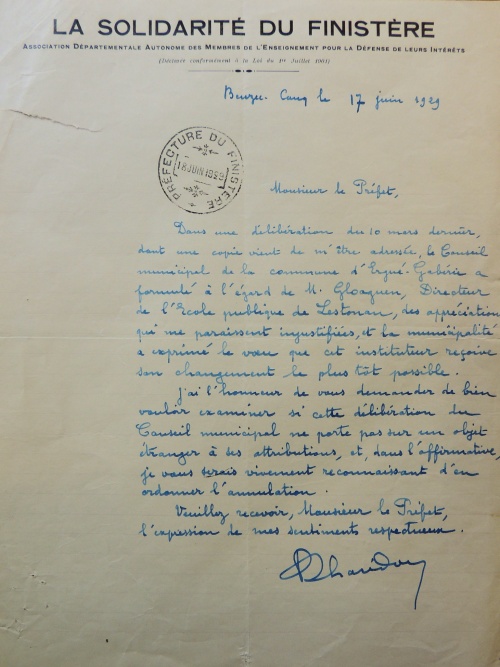 LA SOLIDARITÉ DU FINISTÈRE
ASSOCIATION DÉPARTEMENTALE AUTONOME DES MEMBRES DE L'ENSEIGNEMENT POUR LA DÉFENSE DE LEURS INTÉRÊTS
(Déclarée conformément à la Loi du 1er Juillet 1901)
Beuzec-Conq le 17 juin 1929
PRÉFECTURE DU FINISTÈRE
18 JUIN 1929
Monsieur le Préfet,
Dans une délibération du 10 mars dernier,
dont une copie vient de m'être adressée, le Conseil
municipal de la commune d'Ergué-Gabéric a
formulé à l'égard de M. Gloaguen, Directeur
de l'Ecole publique de Lestonan, des appréciation
qui me paraissent injustifiées, et la municipalité
a exprimé le vœu que cet instituteur reçoive
son changement le plus tôt possible.
J'ai l'honneur de vous demander de bien
vouloir examiner si cette délibération du
Conseil municipal ne porte pas sur un objet
étranger à ses attributions, et, dans l'affirmative,
je vous serais vivement reconnaissant d'en
ordonner l'annulation.
Veuillez recevoir, Monsieur le Préfet,
l'expression de mes sentiments respectueux.